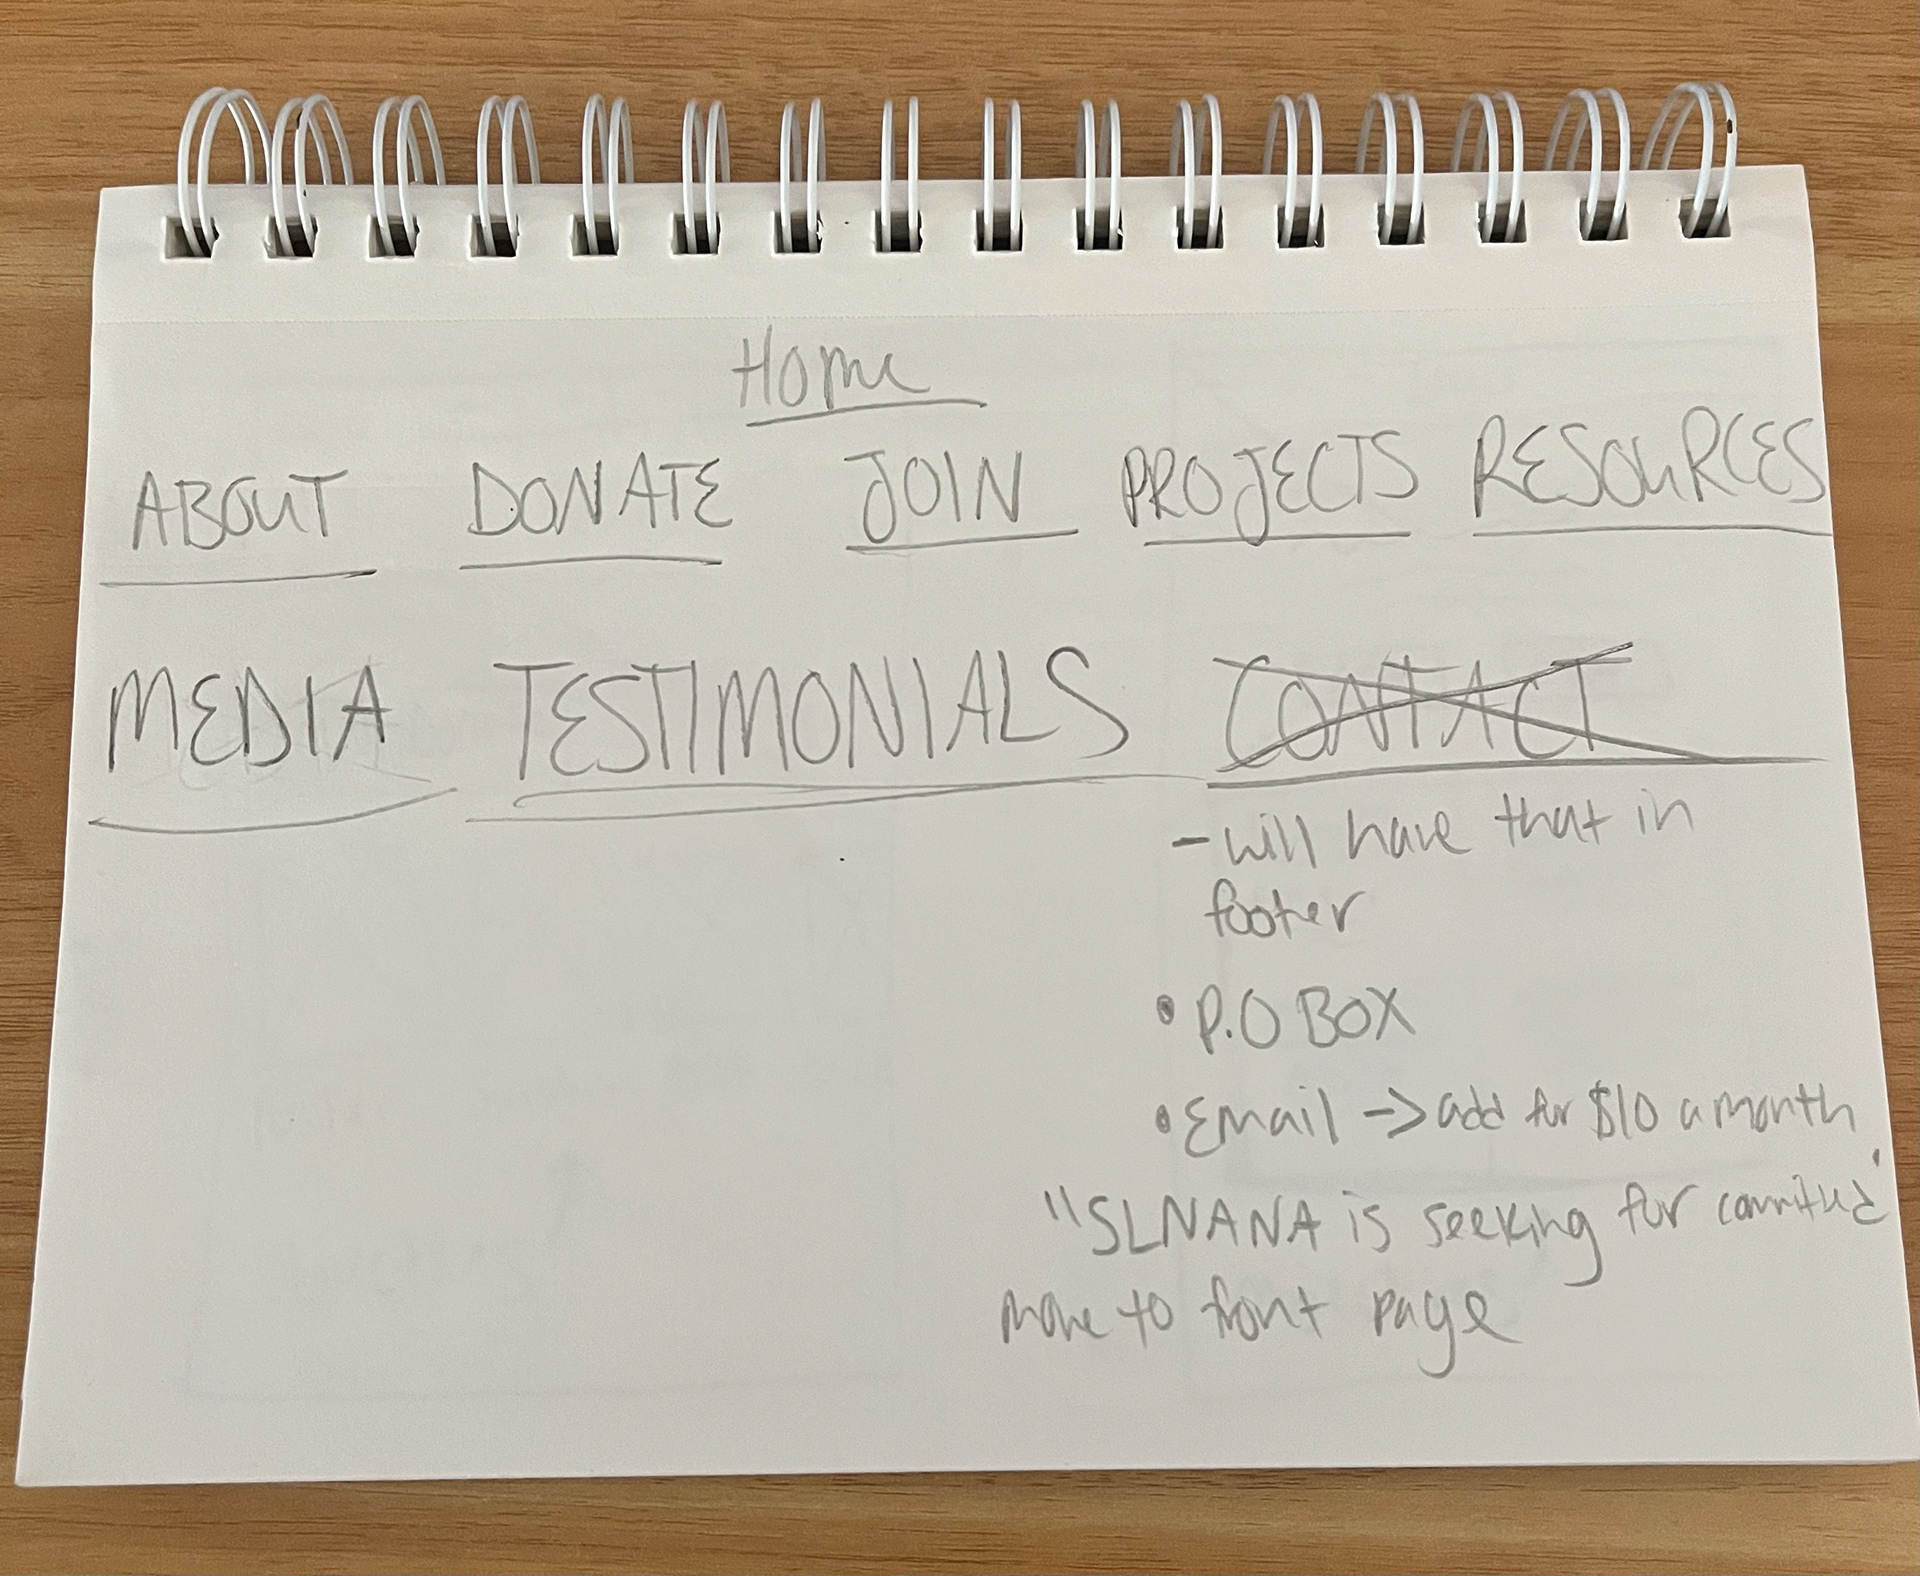 Home
ABOUT DONATE JOIN PROJECTS RESOURCES
MEDIA TESTIMONIALS CONTACT
- will have that in
footer
• P.O BOX
• Email -> add for $10 a month
"SLNANA is seeking for
move to front page